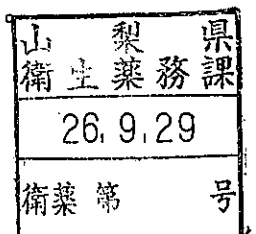 山梨県
衛生薬務課
26.9.29
衛薬第 号